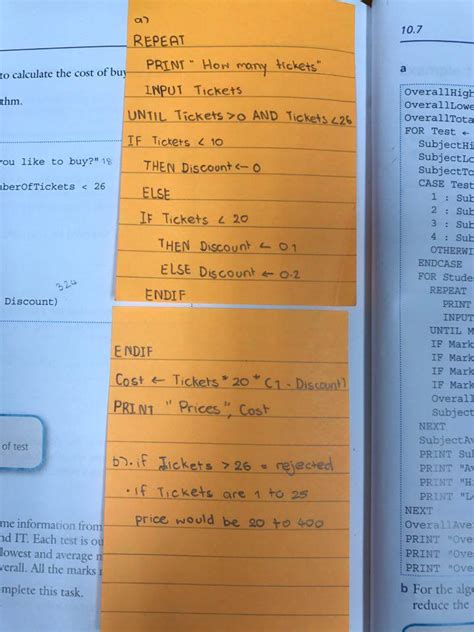 to calculate the cost of buy
thm.
you like to buy?" 18
berOfTickets < 26
324
Discount)
of test
me information from
nd IT. Each test is ou
lowest and average m
verall. All the marks
mplete this task.
a)
REPEAT
PRINT " How many tickets"
INPUT Tickets
UNTIL Tickets>0 AND Tickets<26
IF Tickets < 10
THEN Discount ← 0
ELSE
IF Tickets < 20
THEN Discount ← 0.1
ELSE Discount ← 0.2
ENDIF
ENDIF
Cost ← Tickets * 20 * (1 - Discount)
PRINT "Prices", Cost
b). if Tickets > 26 = rejected
• if Tickets are 1 to 25
price would be 20 to 400
10.7
a
OverallHigh
OverallLowe
OverallTota
FOR Test ←
SubjectHi
SubjectLo
SubjectTo
CASE Test
1 : Sub
2 : Sub
3 : Sub
4 : Sub
OTHERWI
ENDCASE
FOR Stude
REPEAT
PRINT
INPUT
UNTIL M
IF Mark
IF Mark
IF Mark
IF Mark
Overall
Subject
NEXT
SubjectAv
PRINT Sub
PRINT "Av
PRINT "H
PRINT "L
NEXT
OverallAve
PRINT "Ove
PRINT "Ove
PRINT "Ove
b For the alg
reduce the